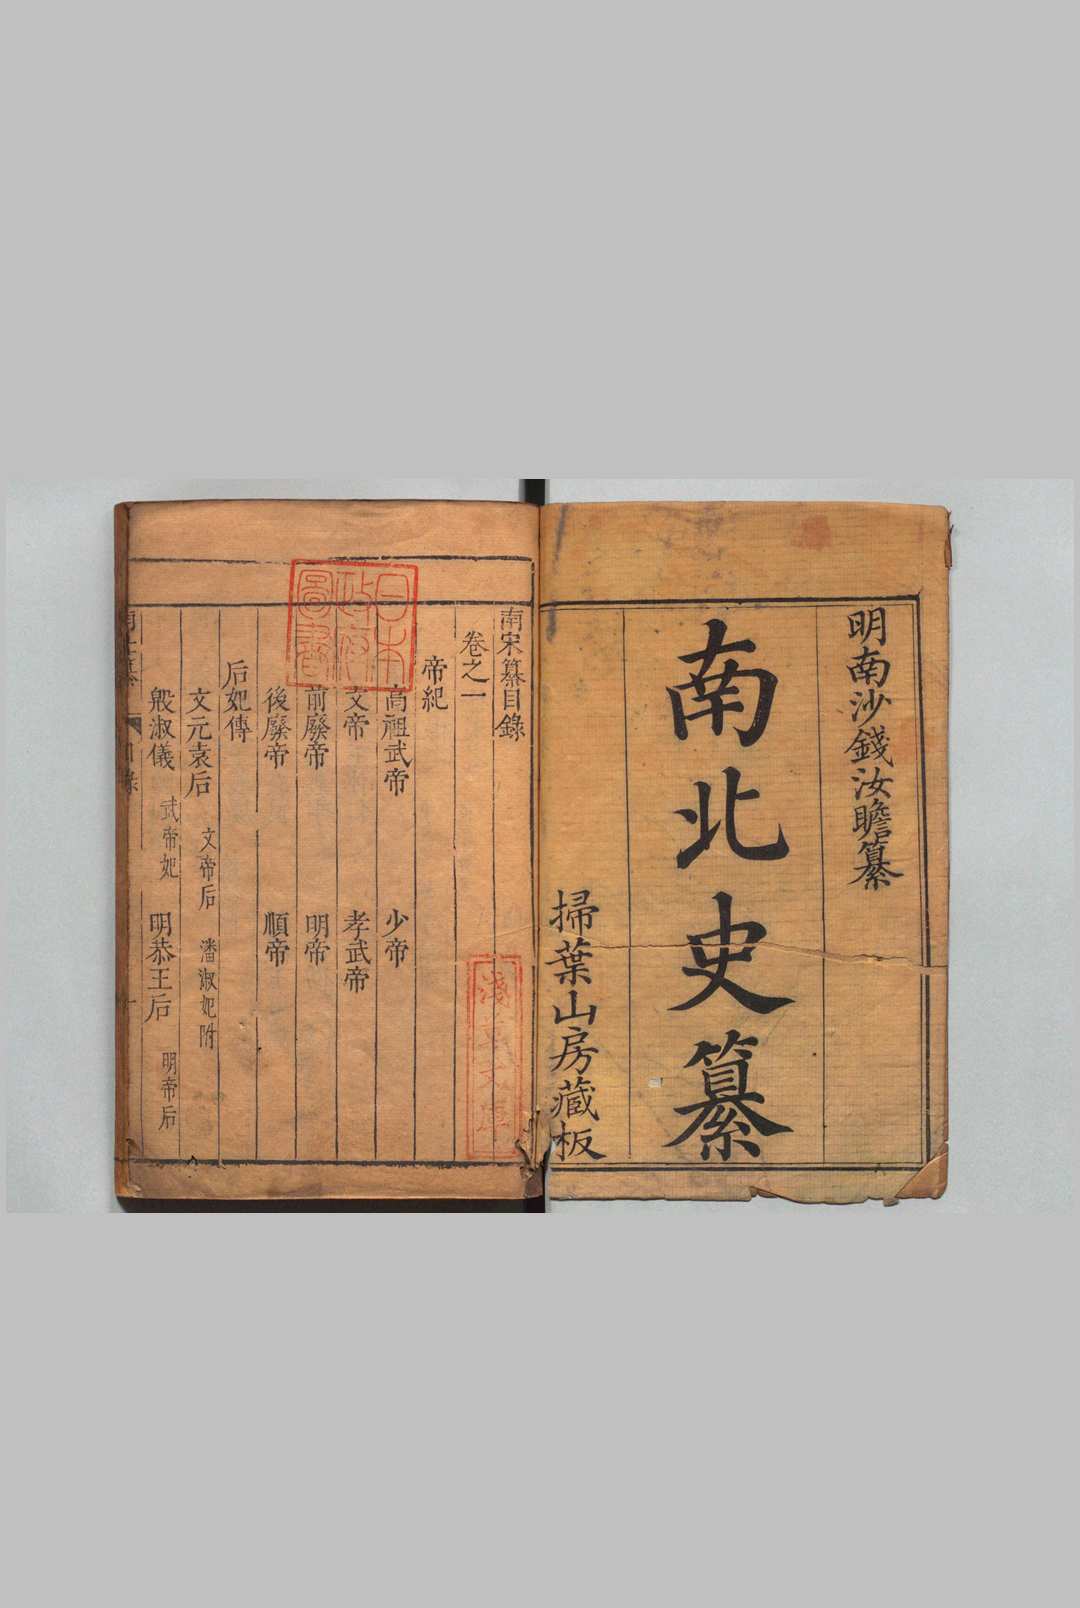 明南沙錢汝瞻纂
南北史纂
掃葉山房藏板
南宋纂目錄
卷之一
帝紀
高祖武帝 少帝
文帝 孝武帝
前廢帝 明帝
後廢帝 順帝
后妃傳
文元袁后 文帝后 潘淑妃附
殷淑儀 武帝妃 明恭王后 明帝后
日本
政府
圖書
淺草文庫